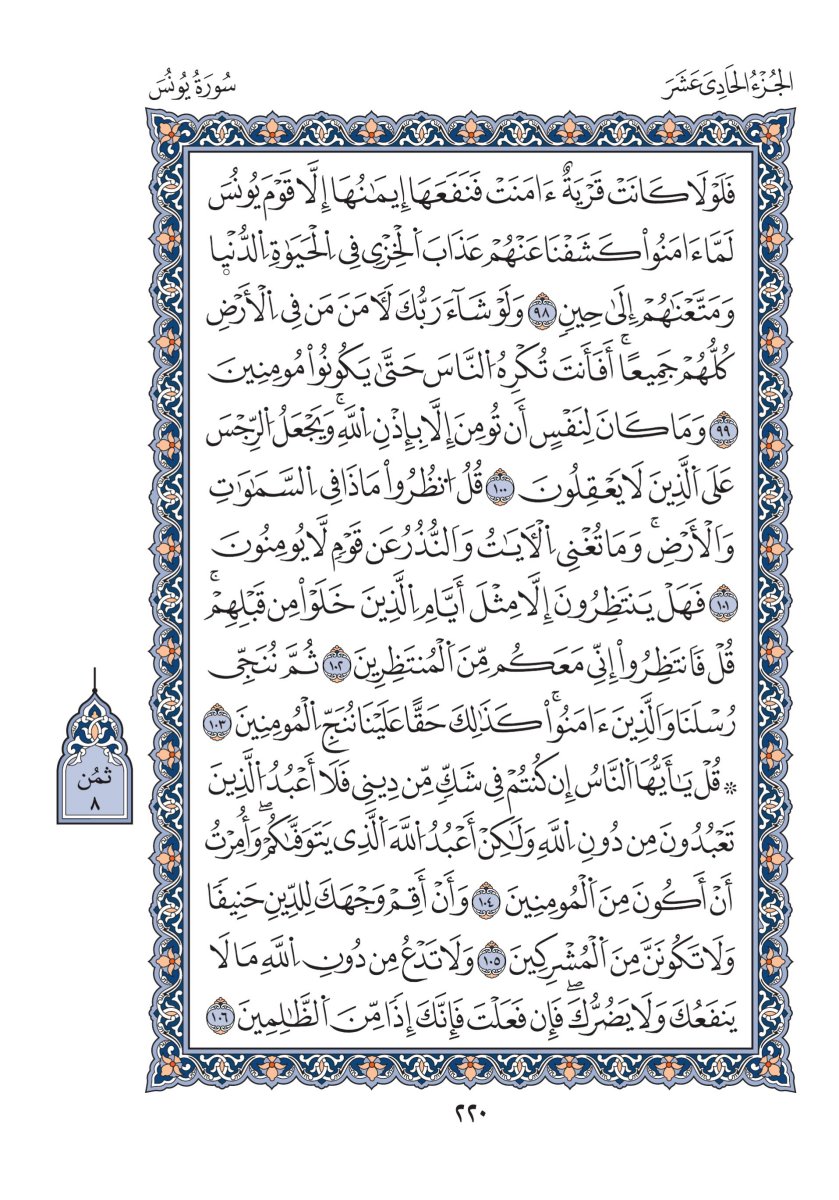 الجُزْءُ الحَادِىَ عَشَرَ
سُورَةُ يُونُسَ
فَلَوْلَا كَانَتْ قَرْيَةٌ ءَامَنَتْ فَنَفَعَهَا إِيمَٰنُهَا إِلَّا قَوْمَ يُونُسَ
لَمَّا ءَامَنُواْ كَشَفْنَا عَنْهُمْ عَذَابَ اَلْخِزْىِ فِى اِلْحَيَوٰةِ اِلدُّنْيٜا
وَمَتَّعْنَٰهُمْ إِلَىٰ حِينٍ ٩٨ وَلَوْ شَآءَ رَبُّكَ لَأٓمَنَ مَن فِى اِلْأَرْضِ
كُلُّهُمْ جَمِيعًاۚ أَفَأَنتَ تُكْرِهُ اُلنَّاسَ حَتَّىٰ يَكُونُواْ مُومِنِينَ
٩٩ وَمَا كَانَ لِنَفْسٍ أَن تُومِنَ إِلَّا بِإِذْنِ اِللَّهِۚ وَيَجْعَلُ اُلرِّجْسَ
عَلَى اَلَّذِينَ لَا يَعْقِلُونَ ١٠٠ قُلُ اُنظُرُواْ مَاذَا فِى اِلسَّمَٰوَٰتِ
وَالْأَرْضِۚ وَمَا تُغْنِى اِلْأٓيَٰتُ وَالنُّذُرُ عَن قَوْمٍ لَّا يُومِنُونَ
١٠١ فَهَلْ يَنتَظِرُونَ إِلَّا مِثْلَ أَيَّامِ اِلَّذِينَ خَلَوْاْ مِن قَبْلِهِمْۚ
قُلْ فَانتَظِرُواْ إِنِّى مَعَكُم مِّنَ اَلْمُنتَظِرِينَ ١٠٢ ثُمَّ نُنَجِّى
رُسُلَنَا وَالَّذِينَ ءَامَنُواْۚ كَذَٰلِكَ حَقًّا عَلَيْنَا نُنَجِّ اِلْمُومِنِينَ ١٠٣
۞ قُلْ يَٰأَيُّهَا اَلنَّاسُ إِن كُنتُمْ فِى شَكٍّ مِّن دِينِى فَلَا أَعْبُدُ اُلَّذِينَ
تَعْبُدُونَ مِن دُونِ اِللَّهِ وَلَٰكِنْ أَعْبُدُ اُللَّهَ اَلَّذِى يَتَوَفَّىٰكُمْۖ وَأُمِرْتُ
أَنْ أَكُونَ مِنَ اَلْمُومِنِينَ ١٠٤ وَأَنْ أَقِمْ وَجْهَكَ لِلدِّينِ حَنِيفًا
وَلَا تَكُونَنَّ مِنَ اَلْمُشْرِكِينَ ١٠٥ وَلَا تَدْعُ مِن دُونِ اِللَّهِ مَا لَا
يَنفَعُكَ وَلَا يَضُرُّكَۖ فَإِن فَعَلْتَ فَإِنَّكَ إِذًا مِّنَ اَلظَّٰلِمِينَ ١٠٦
ثمُن
٨
٢٢٠